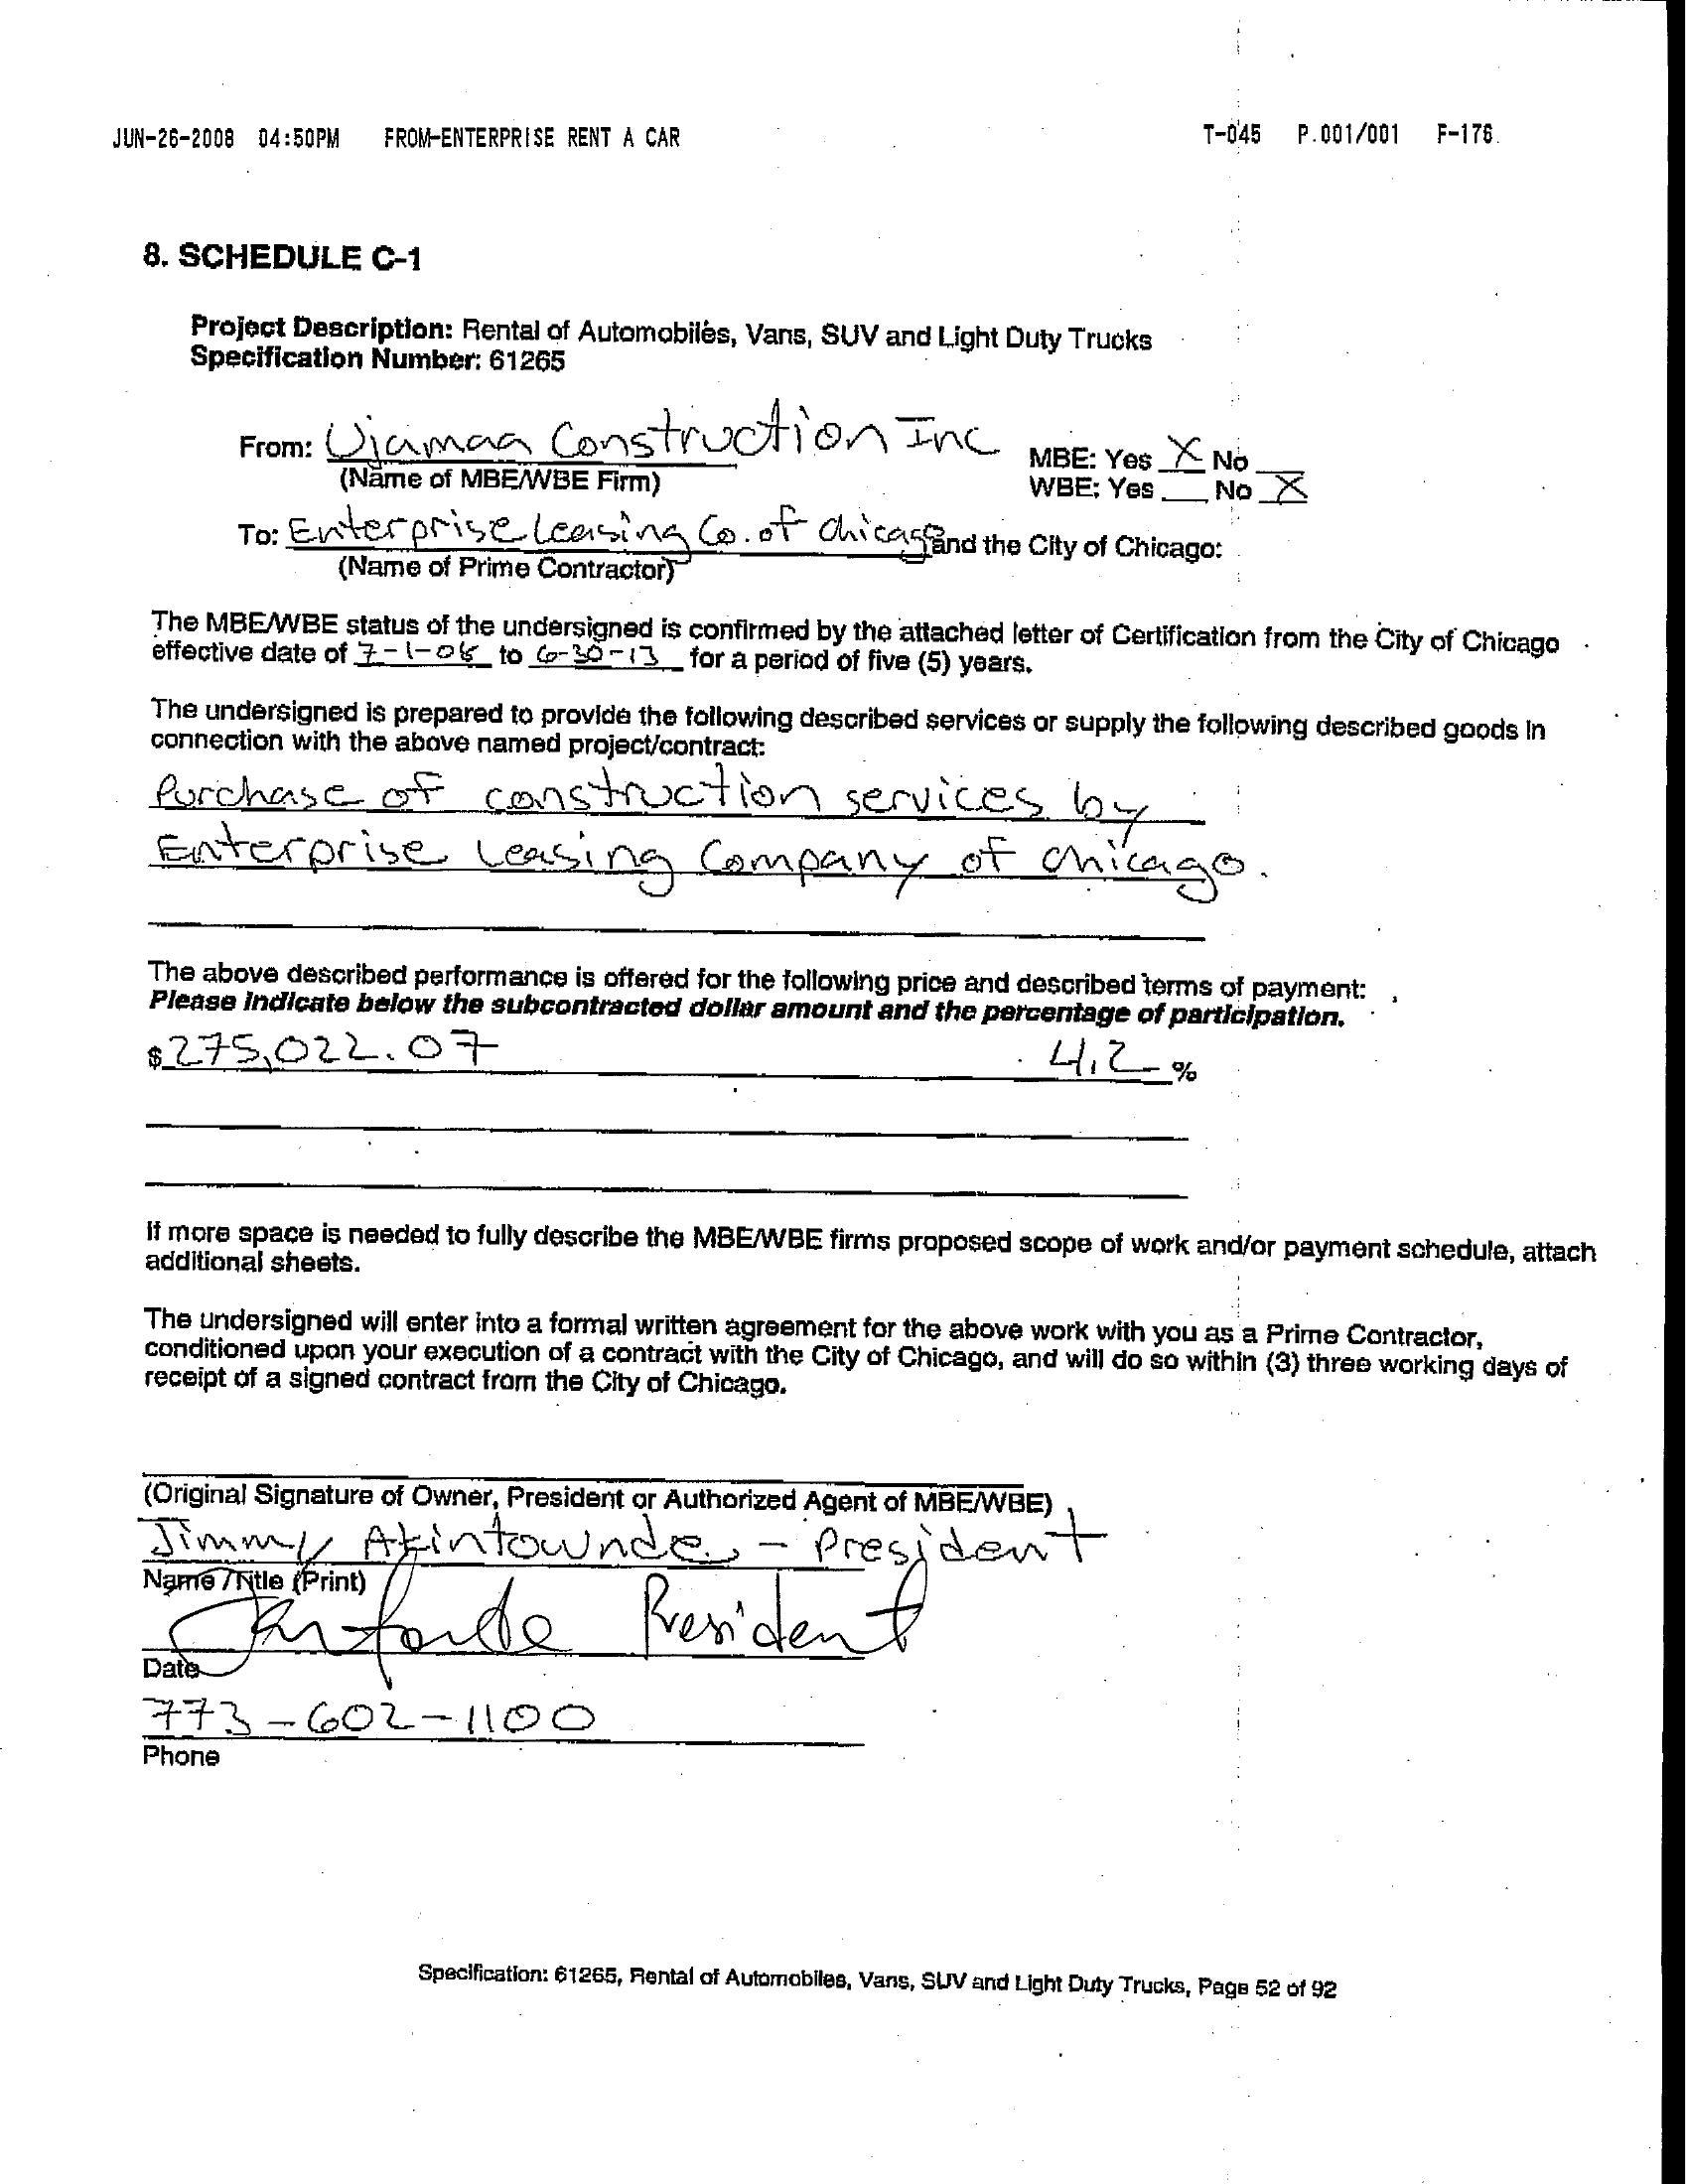 JUN-26-2008 04:50PM FROM-ENTERPRISE RENT A CAR T-045 P.001/001 F-176
8. SCHEDULE C-1
Project Description: Rental of Automobiles, Vans, SUV and Light Duty Trucks
Specification Number: 61265
From: Ujamaa Construction Inc MBE: Yes X No
(Name of MBE/WBE Firm) WBE: Yes No X
To: Enterprise Leasing Co. of Chicago and the City of Chicago:
(Name of Prime Contractor)
The MBE/WBE status of the undersigned is confirmed by the attached letter of Certification from the City of Chicago
effective date of 7-1-08 to 6-30-13 for a period of five (5) years.
The undersigned is prepared to provide the following described services or supply the following described goods in
connection with the above named project/contract:
Purchase of construction services by
Enterprise Leasing Company of Chicago.
The above described performance is offered for the following price and described terms of payment:
Please indicate below the subcontracted dollar amount and the percentage of participation.
$ 275,022.07 4.2 %
If more space is needed to fully describe the MBE/WBE firms proposed scope of work and/or payment schedule, attach
additional sheets.
The undersigned will enter into a formal written agreement for the above work with you as a Prime Contractor,
conditioned upon your execution of a contract with the City of Chicago, and will do so within (3) three working days of
receipt of a signed contract from the City of Chicago.
(Original Signature of Owner, President or Authorized Agent of MBE/WBE)
Jimmy Akintownde - President
Name /Title (Print)
President
Date
773-602-1100
Phone
Specification: 61265, Rental of Automobiles, Vans, SUV and Light Duty Trucks, Page 52 of 92